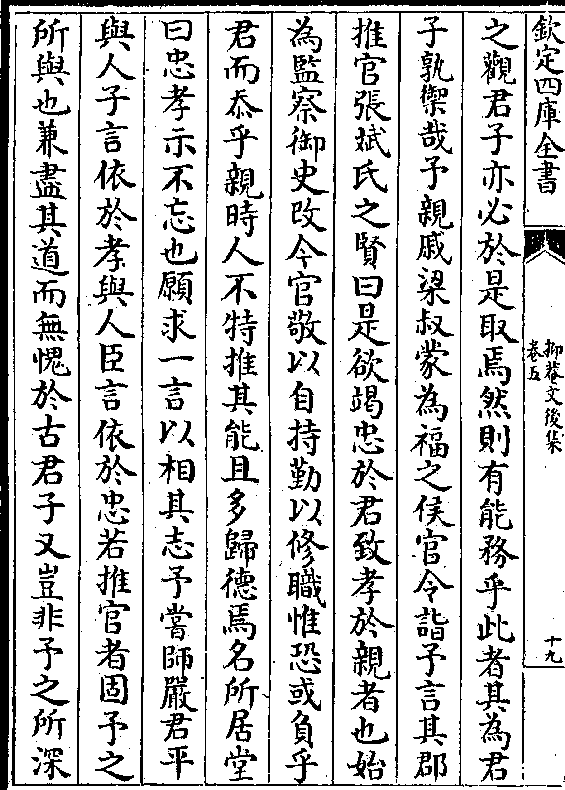 欽定四庫全書
抑菴文後集
卷五
十九
之觀君子亦必於是取焉然則有能務乎此者其為君
子孰禦哉予親戚梁叔蒙為福之侯官令詣予言其郡
推官張斌氏之賢曰是欲竭忠於君致孝於親者也始
為監察御史改今官敬以自持勤以修職惟恐或負乎
君而忝乎親時人不特推其能且多歸德焉名所居堂
曰忠孝示不忘也願求一言以相其志予嘗師嚴君平
與人子言依於孝與人臣言依於忠若推官者固予之
所與也兼盡其道而無愧於古君子又豈非予之所深